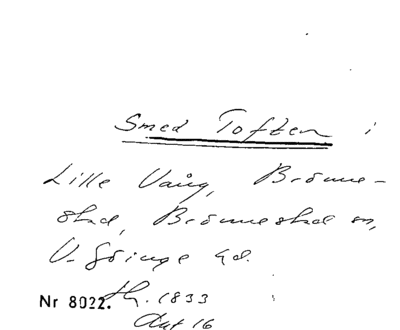 Smed Toften i
Lille Vång, Brönne-
stad, Brönnestad sn,
V. Göinge hd.
Nr 8022. fl. 1833
Aut 16